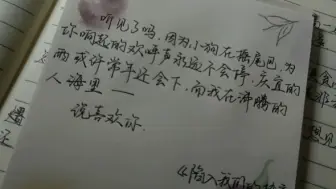 听见了吗，因为小狗在摇尾巴，为
你响起的欢呼声永远不会停，庆宣的
雨或许常年还会下，而我在沸腾的
人海里——
说喜欢你.
《陷入我们的